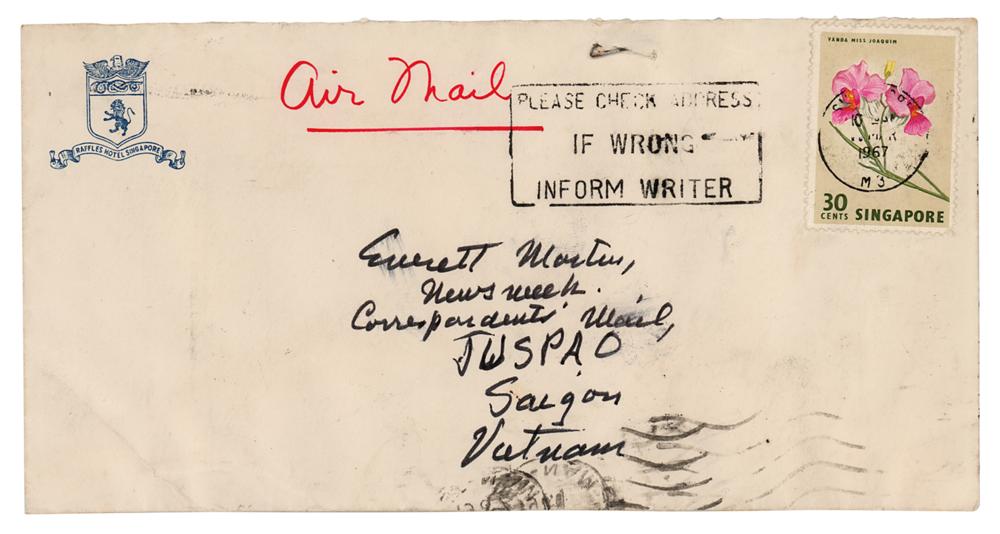 RAFFLES HOTEL SINGAPORE
Air Mail
PLEASE CHECK ADDRESS
IF WRONG
INFORM WRITER
VANDA MISS JOAQUIM
1967
M3
30
CENTS SINGAPORE
Everett Martin,
Newsweek.
Correspondents' Mail,
JUSPAO
Saigon
Vietnam